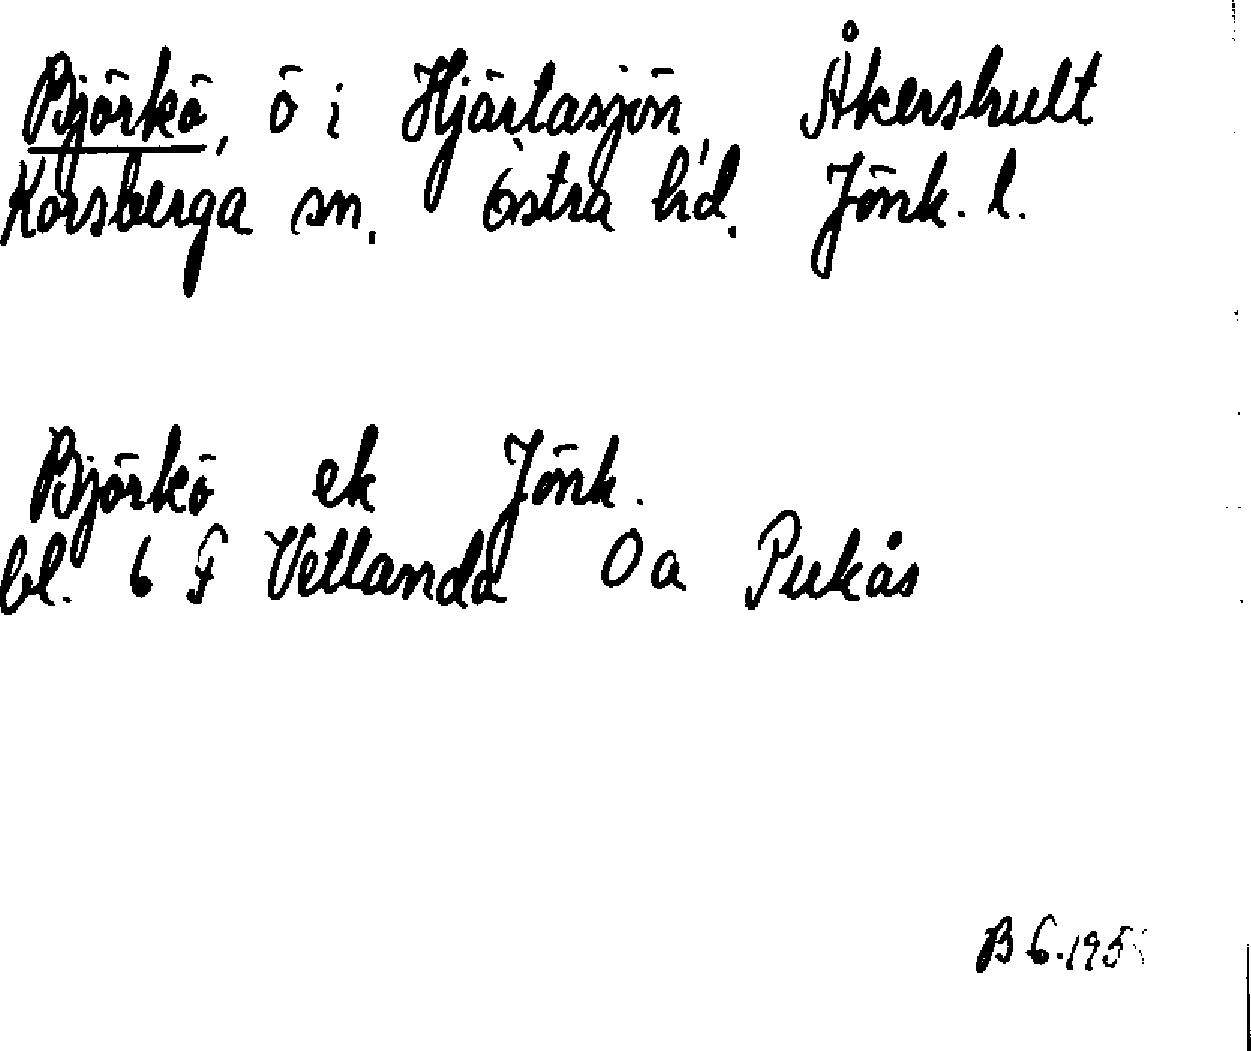 Björkö, ö i Hjärtasjön, Åkershult
Korsberga sn. Östra hd. Jönk. l.
Björkö ek Jönk.
bl. 6 F Vetlanda 0 a Pukås
B 6.